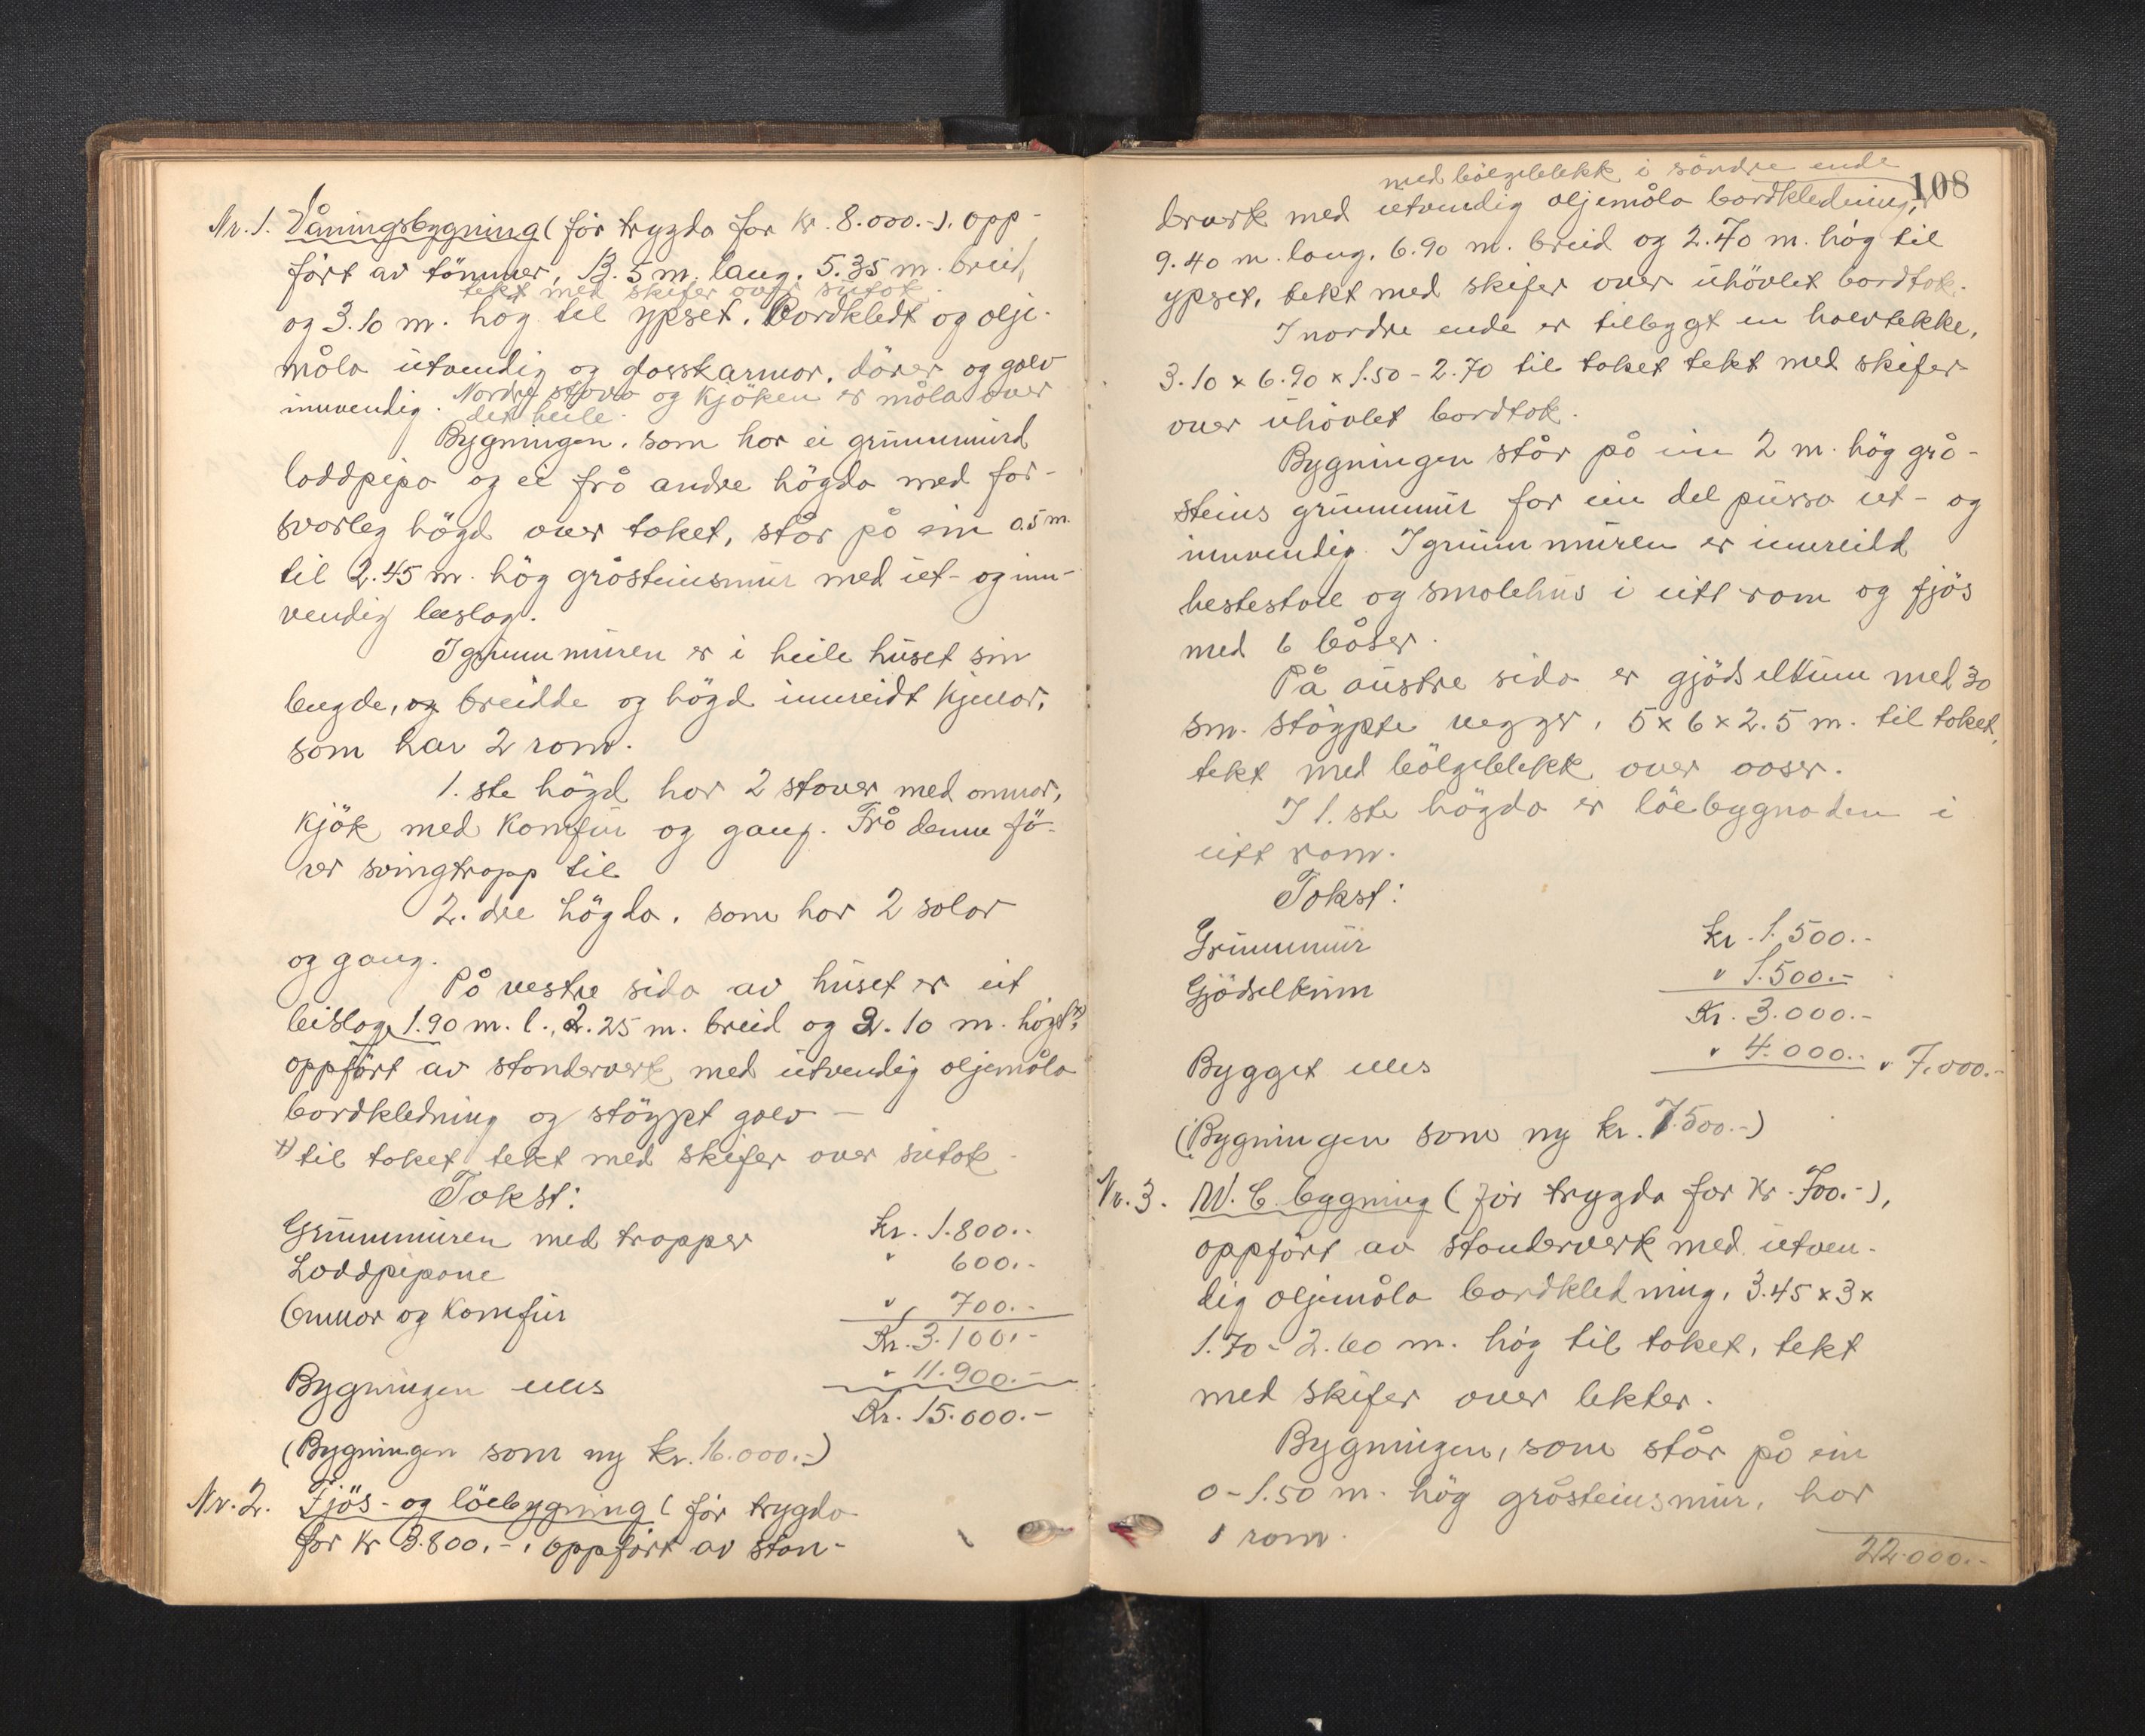 Nr. 1. Våningsbygning (för trygda for kr. 8.000.-), opp-
fört av tömmer, 13.5 m. lang, 5.35 m. breid,
tekt med skifer over sutak.
og 3.10 m. høg til ypset. Bordkledt og olje-
måla utvendig og glasskarmar, dörer og golv
innvendig. Nordre stova og kjöken er måla over
det heile.
Bygningen, som har ei grunnmurd
loddpipa og ei frå andre högda med for-
svarleg högd over taket, står på ein 0.5 m.
til 2.45 m. hög gråsteinsmur med ut- og inn-
vendig beslag.
I grunnmuren er i heile huset sin
lengde, og breidde og högd innreidt kjellar,
som har 2 rom.
1.ste högd har 2 stover med omnar,
kjök med komfur og gang. Frå denne fö-
rer svingtrapp til
2.dre högda, som har 2 salar
og gang.
På vestre sida av huset er eit
beislag 1.90 m. l., 2.25 m. breid og 2.10 m. högt x)
oppfört av standerverk med utvendig oljemåla
bordkledning og stöypt golv —
x) til taket tekt med skifer over sutak.
Takst:
Grunnmuren med trapper kr. 1.800.-
Loddpipane " 600.-
Omnar og komfur " 700.-
Kr. 3.100.-
Bygningen elles " 11.900.-
Kr. 15.000.-
(Bygningen som ny kr. 16.000.-)
Nr. 2. Fjös- og löebygning (för trygda
for kr 3.800.-, oppfört av stan-
108
med bölgeblekk i söndre ende
derverk med utvendig oljemåla bordkledning,
9.40 m. lang, 6.90 m. breid og 2.70 m. höг til
ypset, tekt med skifer over uhövlet bordtak.
I nordre ende er tilbygt en halvtekke,
3.10 x 6.90 x 1.50 - 2.70 til taket tekt med skifer
over uhövlet bordtak.
Bygningen står på ein 2 m. hög grå-
steins grunnmur for ein del pussa ut- og
innvendig. I grunnmuren er innreidd
hestestall og smalehus i eitt rom og fjös
med 6 båser.
På austre sida er gjödselkum med 30
sm. stöypte vegger, 5 x 6 x 2.5 m. til taket,
tekt med bölgeblekk over åser.
I 1.ste högda er löebygnaden i
eitt rom.
Takst:
Grunnmur kr. 1.500.-
Gjödselkum " 1.500.-
Kr. 3.000.-
Bygget elles " 4.000.- " 7.000.-
(Bygningen som ny kr. 7.500.-)
Nr. 3. W. C. bygning (för trygda for kr. 700.-),
oppfört av standerverk med utven-
dig oljemåla bordkledning, 3.45 x 3 x
1.70 - 2.60 m. hög til taket, tekt
med skifer over lekter.
Bygningen, som står på ein
0 - 1.50 m. hög gråsteinsmur, har
1 rom.
22.000.-